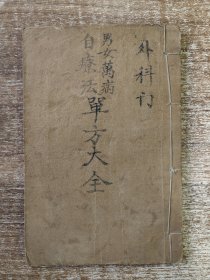 外科门
男女萬病
自療法
單方大全